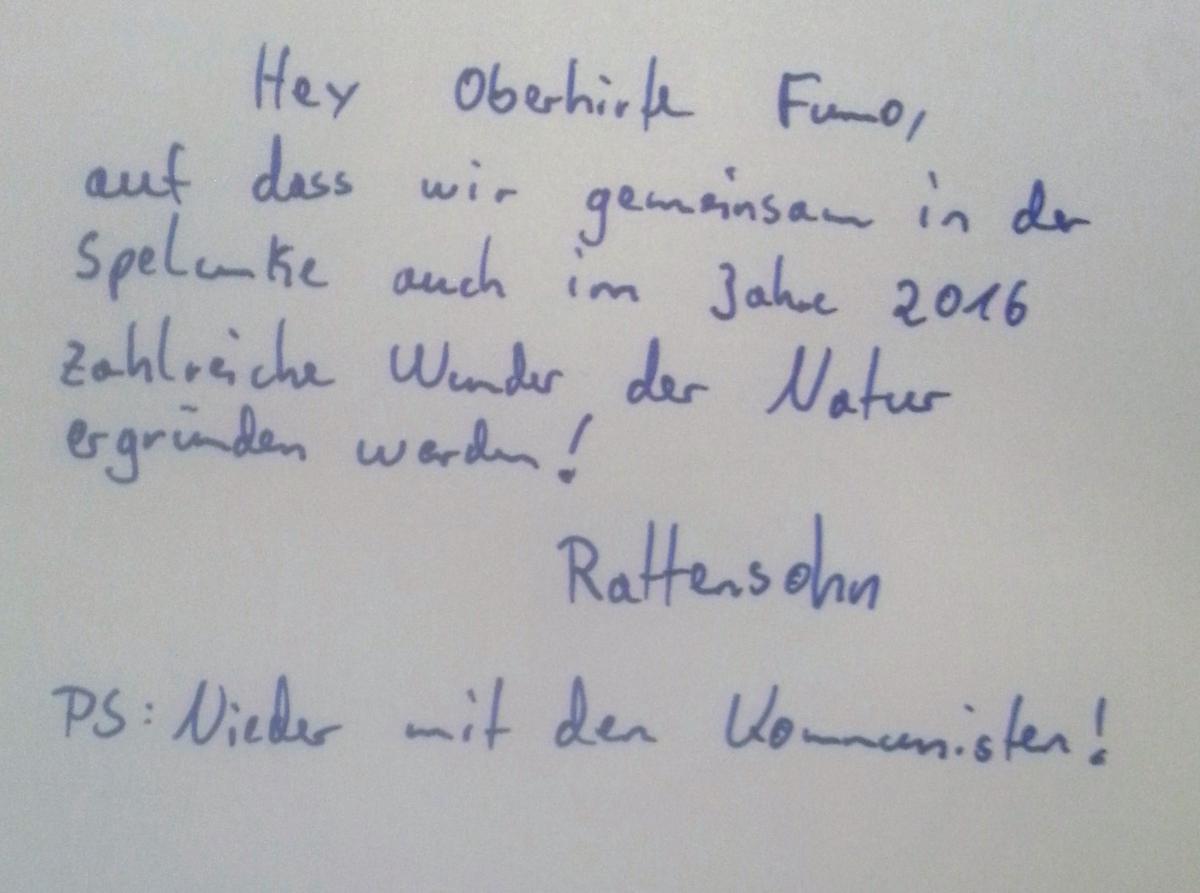 Hey Oberhirte Fumo,
auf dass wir gemeinsam in der
Spelunke auch im Jahre 2016
zahlreiche Wunder der Natur
ergründen werden!
Rattensohn
PS: Nieder mit den Kommunisten!